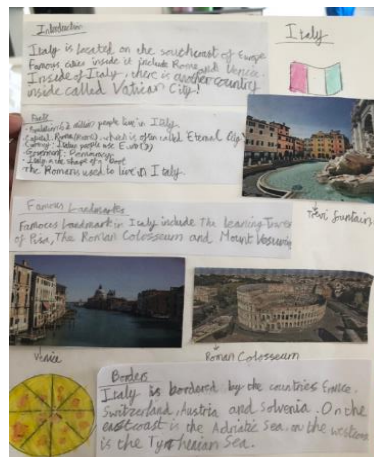 Introduction
Italy
Italy is located on the southeast of Europe
Famous cities inside it include Rome and Venice.
Inside of Italy, there is another country
inside called Vatican City!
Facts
people live in Italy
Capital: Rome, which is often called Eternal City
Currency: Italy people use Euro
Government:
Italy is the shape of a Boot
The Romans used to live in Italy.
Trevi fountain
Famous Landmarks
Famous landmark in Italy include The Leaning Tower
of Pisa, The Roman Colosseum and Mount Vesuvius
Venice
Roman Colosseum
Borders
Italy is bordered by the countries France,
Switzerland, Austria and Solvenia. On the
east coast is the Adriatic Sea, on the west coast
is the Tyrrhenian Sea.